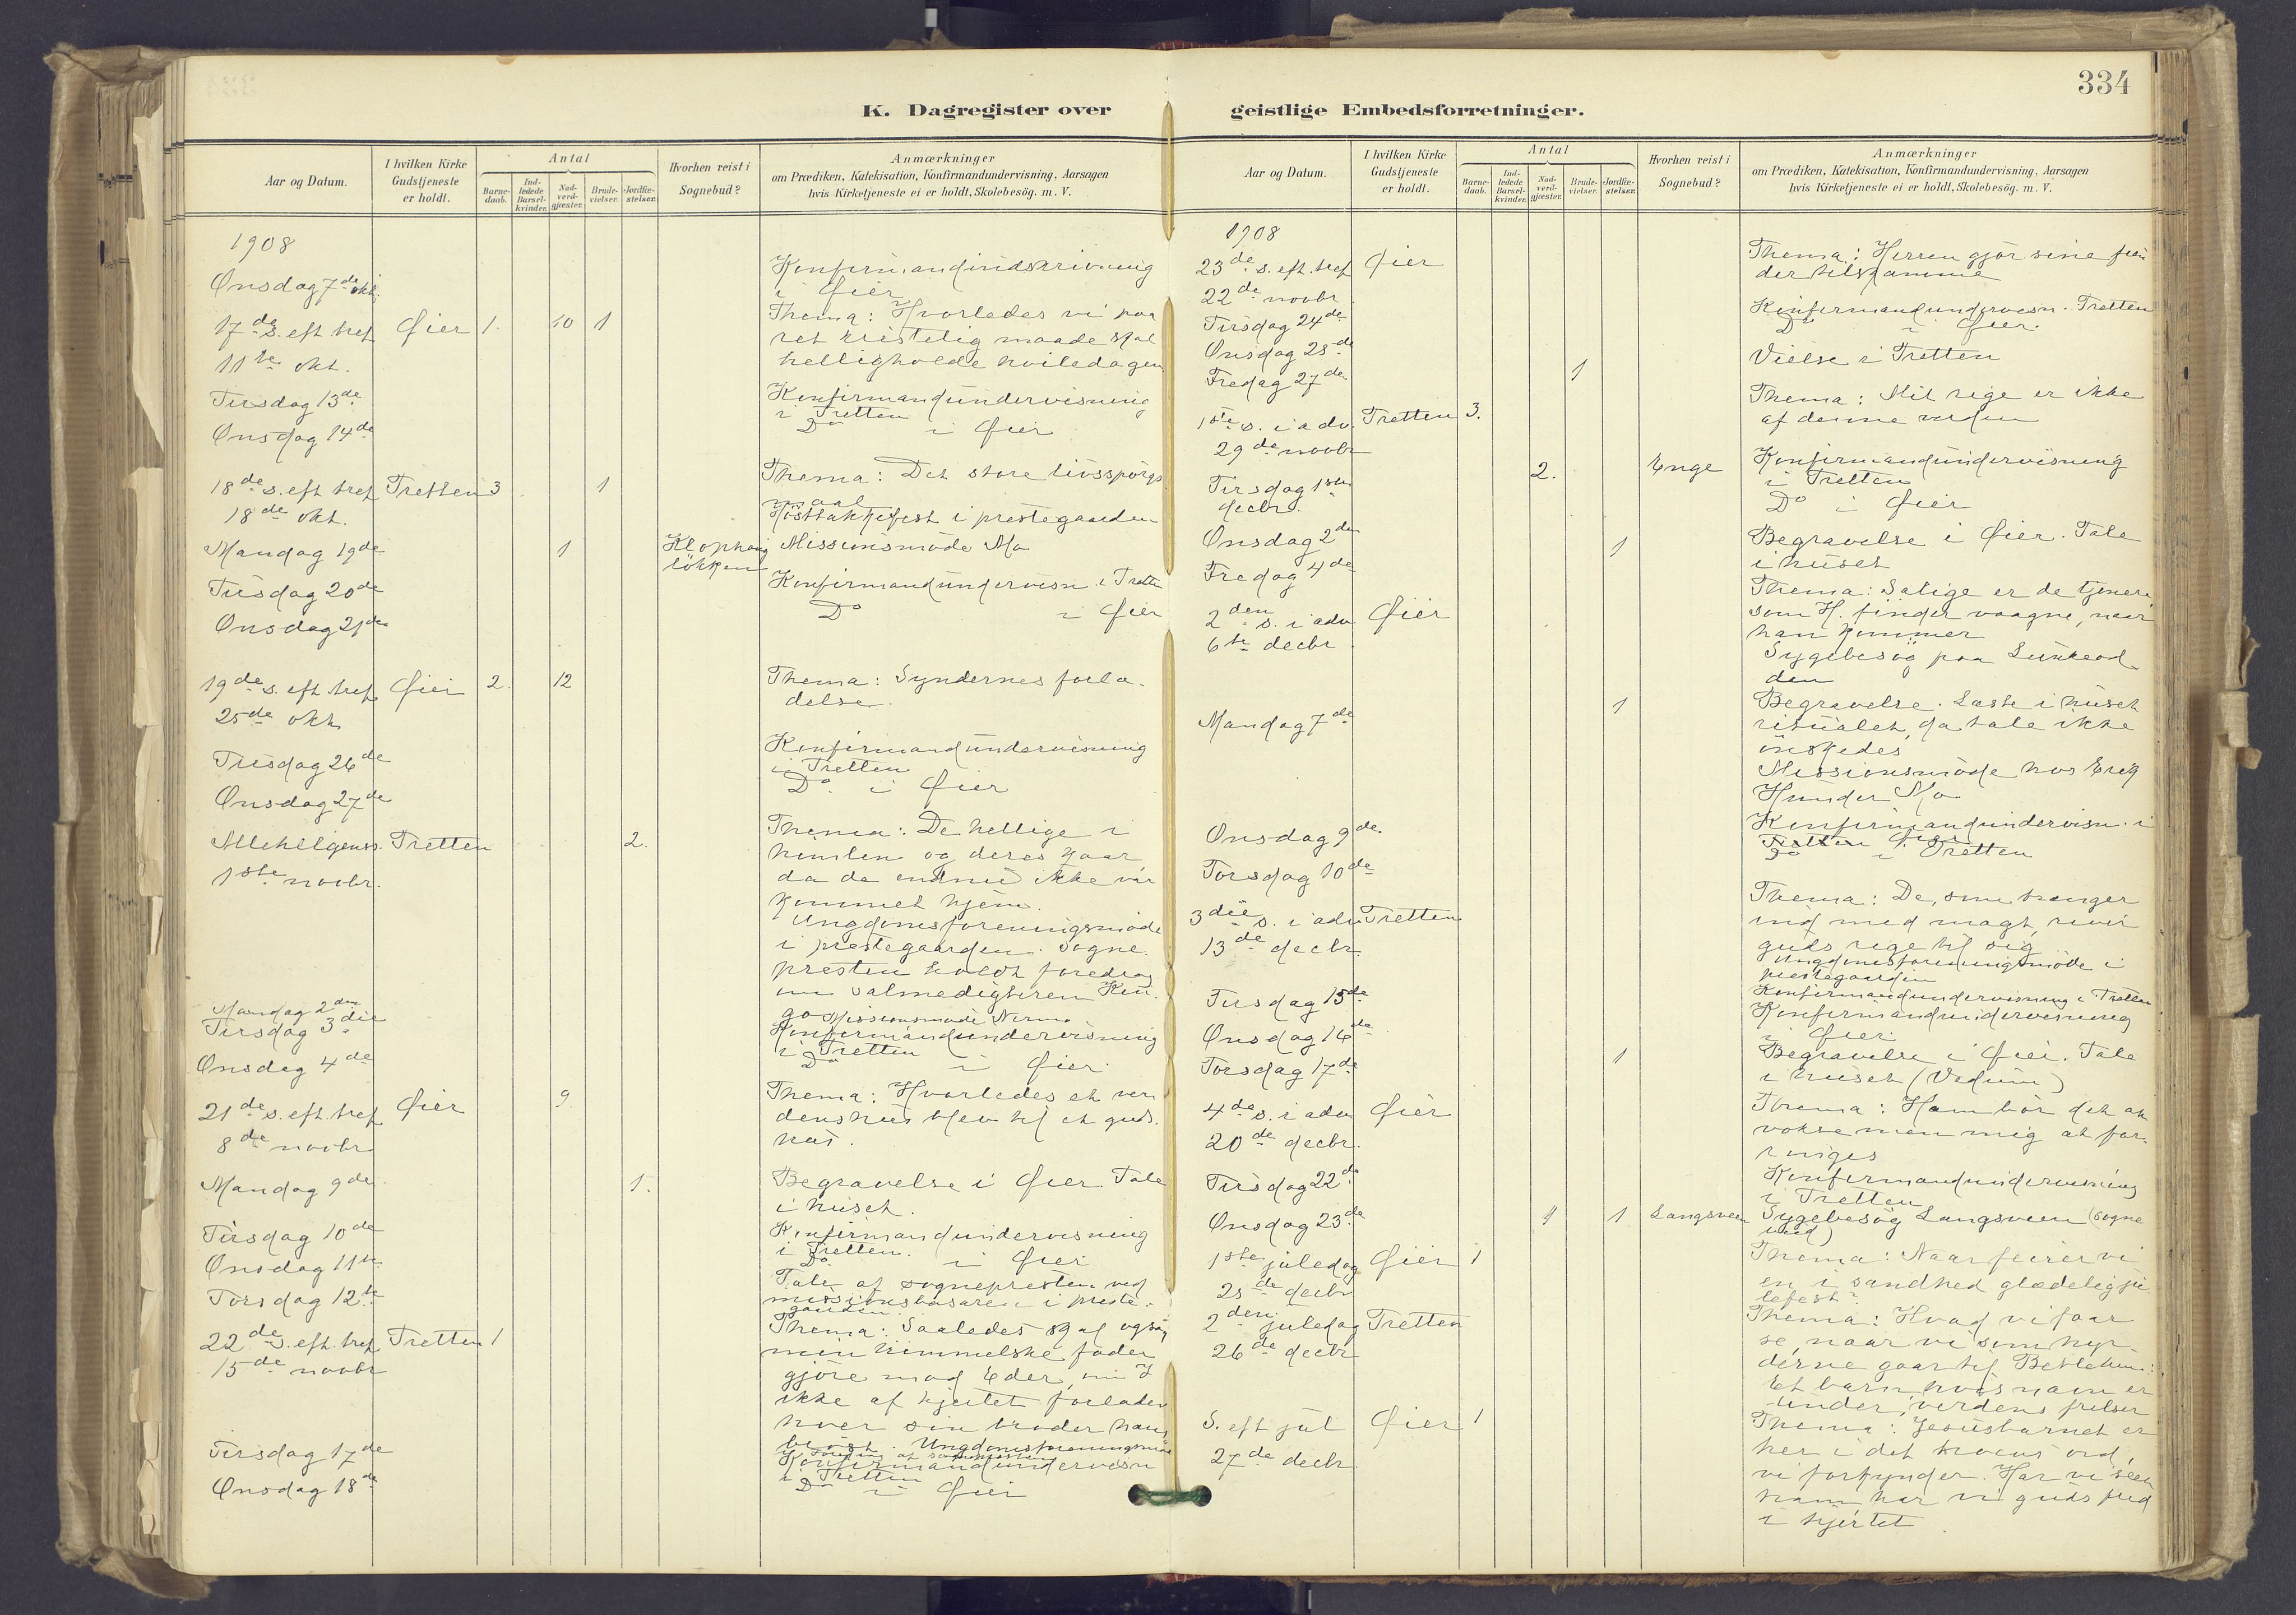 334
K. Dagregister over
geistlige Embedsforretninger.
Aar og Datum.
I hvilken Kirke
Gudstjeneste
er holdt.
Antal
Barne-
daab.
Ind-
ledede
Barsel-
kvinder.
Nad-
verd-
gjæster.
Brude-
vielser.
Jordfæ-
stelser.
Hvorhen reist i
Sognebud?
Anmærkninger
om Prædiken, Katekisation, Konfirmandundervisning, Aarsagen
hvis Kirketjeneste ei er holdt, Skolebesög. m. V.
1908
Onsdag 7de okt.
Konfirmandindskrivning
i Øier
17de s. eft. tref Øier 1. 10 1
11te okt.
Thema: Hvorledes vi paa
ret kristelig maade skal
helligholde hviledagen
Tirsdag 13de
Konfirmandundervisning
i Tretten
Onsdag 14de
Do i Øier
18de s. eft tref Tretten 3 1
18de okt.
Thema: Det store livsspörgs
maal
Hösttakkefest i prestegaarden
Mandag 19de 1 Klophaug
lökken
Missionsmöde Mo
Tirsdag 20de
Konfirmandundervisn. i Tretten
Onsdag 21de
Do i Øier
19de s. eft. tref Øier 2. 12
25de okt
Thema: Syndernes forla-
delse.
Tirsdag 26de
Konfirmandundervisning
i Tretten
Onsdag 27de
Do. i Øier
Allehelgens. Tretten 2.
1ste novbr.
Thema: De hellige i
himlen og deres kaar
da de endnu ikke var
kommet hjem.
Ungdomsforeningsmöde
i prestegaarden. Sogne
presten holdt foredrag
om salmedigteren Kin-
go
Mandag 2den
Missionsmöde
Tirsdag 3die
Konfirmandundervisning
i Tretten
Onsdag 4de
Do i Øier.
21de s. eft. tref Øier 9
8de novbr
Thema: Hvorledes et ver
denshus blev til et guds-
hus.
Mandag 9de 1.
Begravelse i Øier Tale
i huset.
Tirsdag 10de
Konfirmandundervisning
i Tretten.
Onsdag 11te
Do. i Øier
Torsdag 12te
Tale af sognepresten ved
missionsbasaren i preste-
gaarden.
22de s. eft. tref. Tretten 1
15de novbr
Thema: Saaledes skal ogsaa
min himmelske fader
gjöre mod Eder, om I
ikke af hjertet forlader
hver sin broder hans
bröst. Ungdomsforeningsmöde
Tirsdag 17de
Konfirmandundervisn
i Tretten
Onsdag 18de
Do i Øier
Aar og Datum.
I hvilken Kirke
Gudstjeneste
er holdt.
Antal
Barne-
daab.
Ind-
ledede
Barsel-
kvinder.
Nad-
verd-
gjæster.
Brude-
vielser.
Jordfæ-
stelser.
Hvorhen reist i
Sognebud?
Anmærkninger
om Prædiken, Katekisation, Konfirmandundervisning, Aarsagen
hvis Kirketjeneste ei er holdt, Skolebesög. m. V.
1908
23de s. eft. tref Øier
22de novbr.
Thema: Herren gjör sine fien
der tilskamme
Tirsdag 24de
Konfirmandundervisn. Tretten
Onsdag 25de
Do i Øier.
Fredag 27de 1
Vielse i Tretten
1ste s. i adv. Tretten 3.
29de novbr
Thema: Mit rige er ikke
af denne verden
Tirsdag 1ste 2. Enge
decbr.
Konfirmandundervisning
i Tretten
Onsdag 2den
Do i Øier
Fredag 4de 1
Begravelse i Øier. Tale
i huset
2den s. i adv Øier
6te decbr
Thema: Salige er de tjenere,
som H. finder vaagne, naar
han kommer
Sygebesög paa
Mandag 7de 1
Begravelse. Læste i huset
ritualet, da tale ikke
önskedes
Missionsmöde hos Erik
Hunder Mo
Onsdag 9de.
Konfirmandundervisn. i
Tretten Øier
Torsdag 10de
Do i Tretten
3die s. i adv Tretten
13de decbr.
Thema: De, som trænger
ind med magt, river
guds rige til sig
Ungdomsforeningsmöde i
prestegaarden
Tirsdag 15de
Konfirmandundervisning i Tretten
Onsdag 16de
Konfirmandundervisning
i Øier
Torsdag 17de 1
Begravelse i Øier. Tale
i huset (Vedum)
4de s. i adv Øier
20de decbr.
Thema: Ham bör det at
vokse men mig at for-
ringes
Tirsdag 22de
Konfirmandundervisning
i Tretten
Onsdag 23de 1 Langsveen
Sygebesög Langsveen (sogne
bud)
1ste juledag Øier 1
25de decbr
Thema: Naar feirer vi
en i sandhed glædelig ju
lefest?
2den juledag Tretten
26de decbr
Thema: Hvad vi faar
se, naar vi som hyr-
derne gaar til Betlehem:
Et barn, hvis navn er
under, verdens frelser
S. eft jul Øier 1
27de decbr
Thema: Jesusbarnet er
her i det ord,
vi forkynder. Har vi seet
ham, har vi guds fred
i hjertet